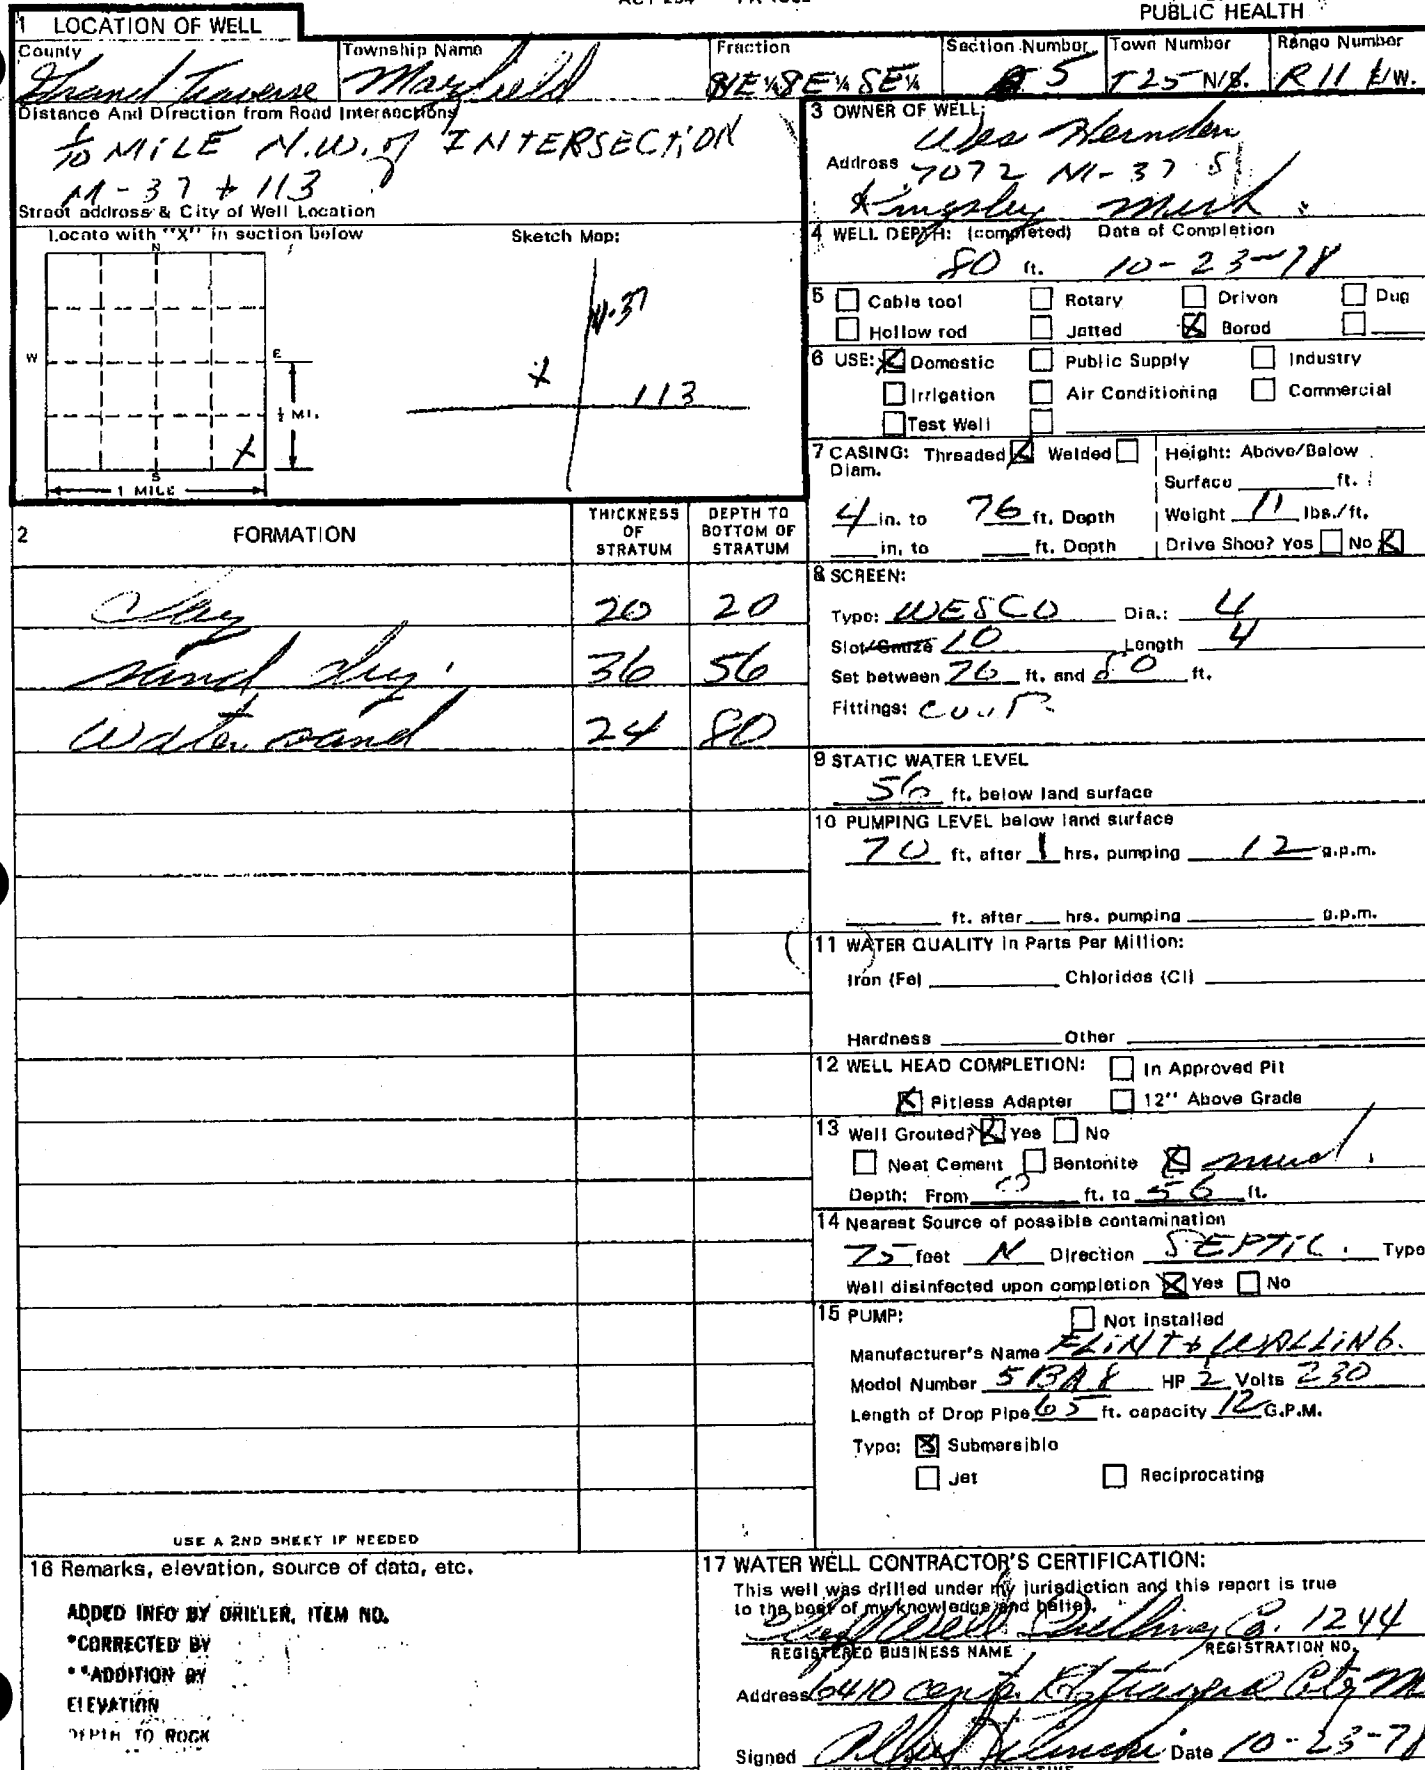 PUBLIC HEALTH
1 LOCATION OF WELL
County Township Name Fraction Section Number Town Number Range Number
Grand Traverse Mayfield NE¼ SE¼ SE¼ 5 T25 N/S. R11 E/W.
Distance And Direction from Road Intersections
1/10 MILE N.W. of INTERSECTION
M-37 + 113
Street address & City of Well Location
Locate with "X" in section below Sketch Map:
N
W E
S
½ MI.
1 MILE
X
M-37
X
113
3 OWNER OF WELL:
Wes Herndon
Address 7072 M-37 S
Kingsley Mich
4 WELL DEPTH: (completed) Date of Completion
80 ft. 10-23-78
5 Cable tool Rotary Driven Dug
Hollow rod Jetted X Bored
6 USE: X Domestic Public Supply Industry
Irrigation Air Conditioning Commercial
Test Well
7 CASING: Threaded X Welded Height: Above/Below
Diam.
Surface ft.
4 in. to 76 ft. Depth Weight 11 lbs./ft.
in. to ft. Depth Drive Shoe? Yes No X
2 FORMATION THICKNESS OF STRATUM DEPTH TO BOTTOM OF STRATUM
Clay 20 20
sand dry. 36 56
water sand 24 80
8 SCREEN:
Type: WESCO Dia.: 4
Slot/Gauze 10 Length 4
Set between 76 ft. and 80 ft.
Fittings:
9 STATIC WATER LEVEL
56 ft. below land surface
10 PUMPING LEVEL below land surface
70 ft. after 1 hrs. pumping 12 g.p.m.
ft. after hrs. pumping g.p.m.
11 WATER QUALITY in Parts Per Million:
Iron (Fe) Chlorides (Cl)
Hardness Other
12 WELL HEAD COMPLETION: In Approved Pit
X Pitless Adapter 12" Above Grade
13 Well Grouted? X Yes No
Neat Cement Bentonite X mud
Depth: From 0 ft. to 56 ft.
14 Nearest Source of possible contamination
75 feet N Direction SEPTIC. Type
Well disinfected upon completion X Yes No
15 PUMP: Not Installed
Manufacturer's Name FLINT & WALLING.
Model Number 5BA8 HP ½ Volts 230
Length of Drop Pipe 65 ft. capacity 12 G.P.M.
Type: X Submersible
Jet Reciprocating
USE A 2ND SHEET IF NEEDED
16 Remarks, elevation, source of data, etc.
ADDED INFO BY DRILLER, ITEM NO.
*CORRECTED BY
**ADDITION BY
ELEVATION
DEPTH TO ROCK
17 WATER WELL CONTRACTOR'S CERTIFICATION:
This well was drilled under my jurisdiction and this report is true
to the best of my knowledge and belief.
Well Drilling Co. 1244
REGISTERED BUSINESS NAME REGISTRATION NO.
Address 6410 Traverse City
Signed Albert Date 10-23-78